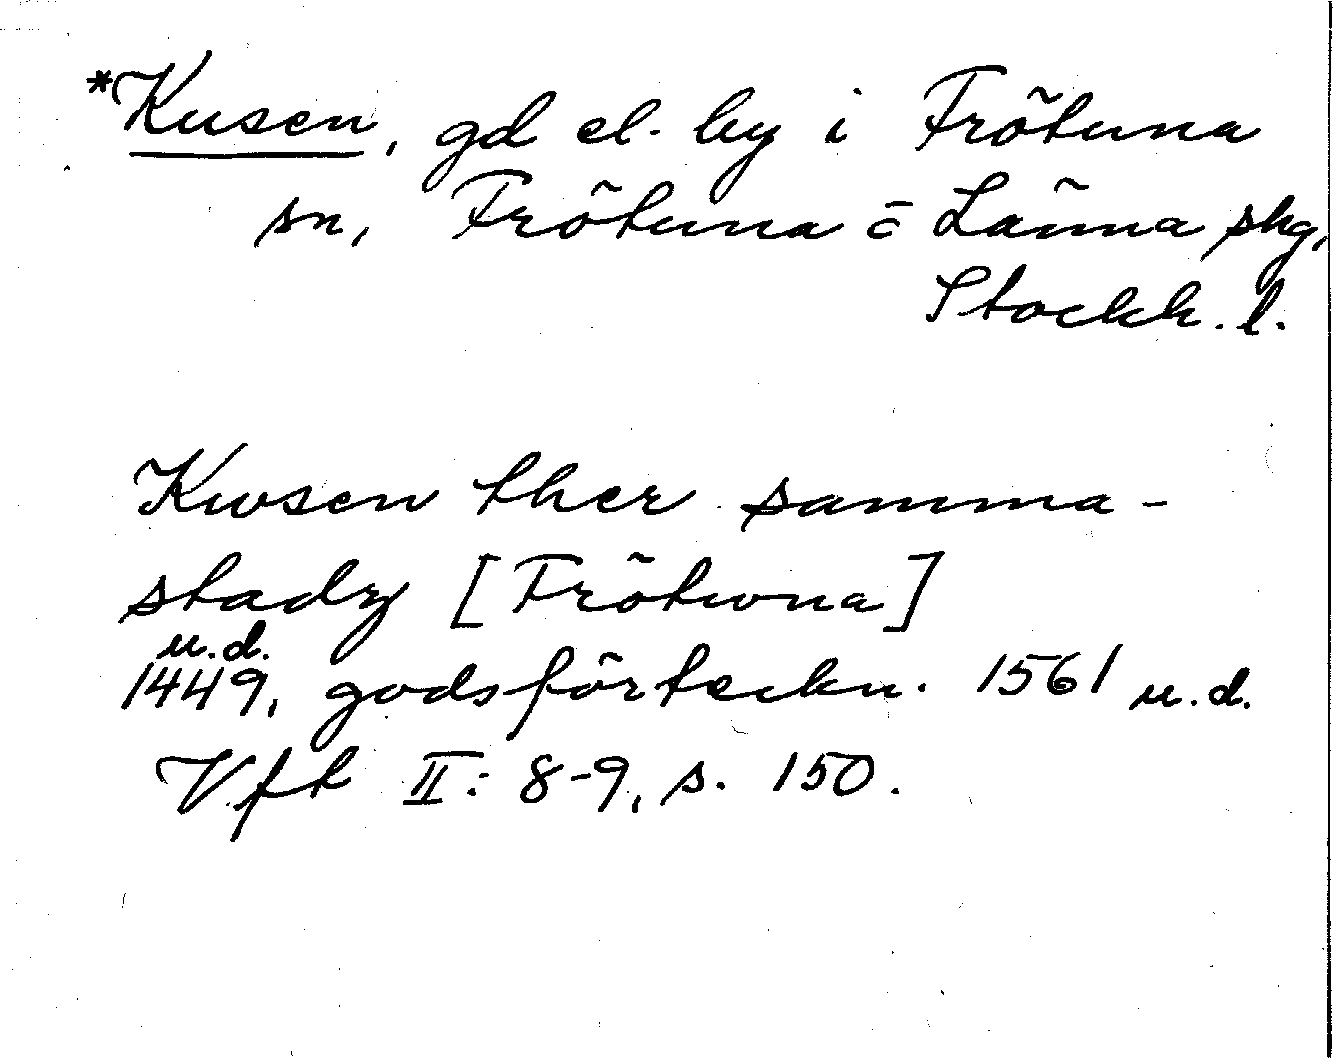 *Kusen, gd el. by i Frötuna
sn, Frötuna o Länna skg,
Stockh. l.
Kwsen ther samma-
stadz [Frötwna]
u.d.
1449, godsförteckn. 1561 u.d.
Vfk II: 8-9, s. 150.